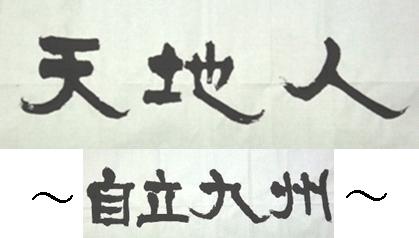 天地人
～自立九州～